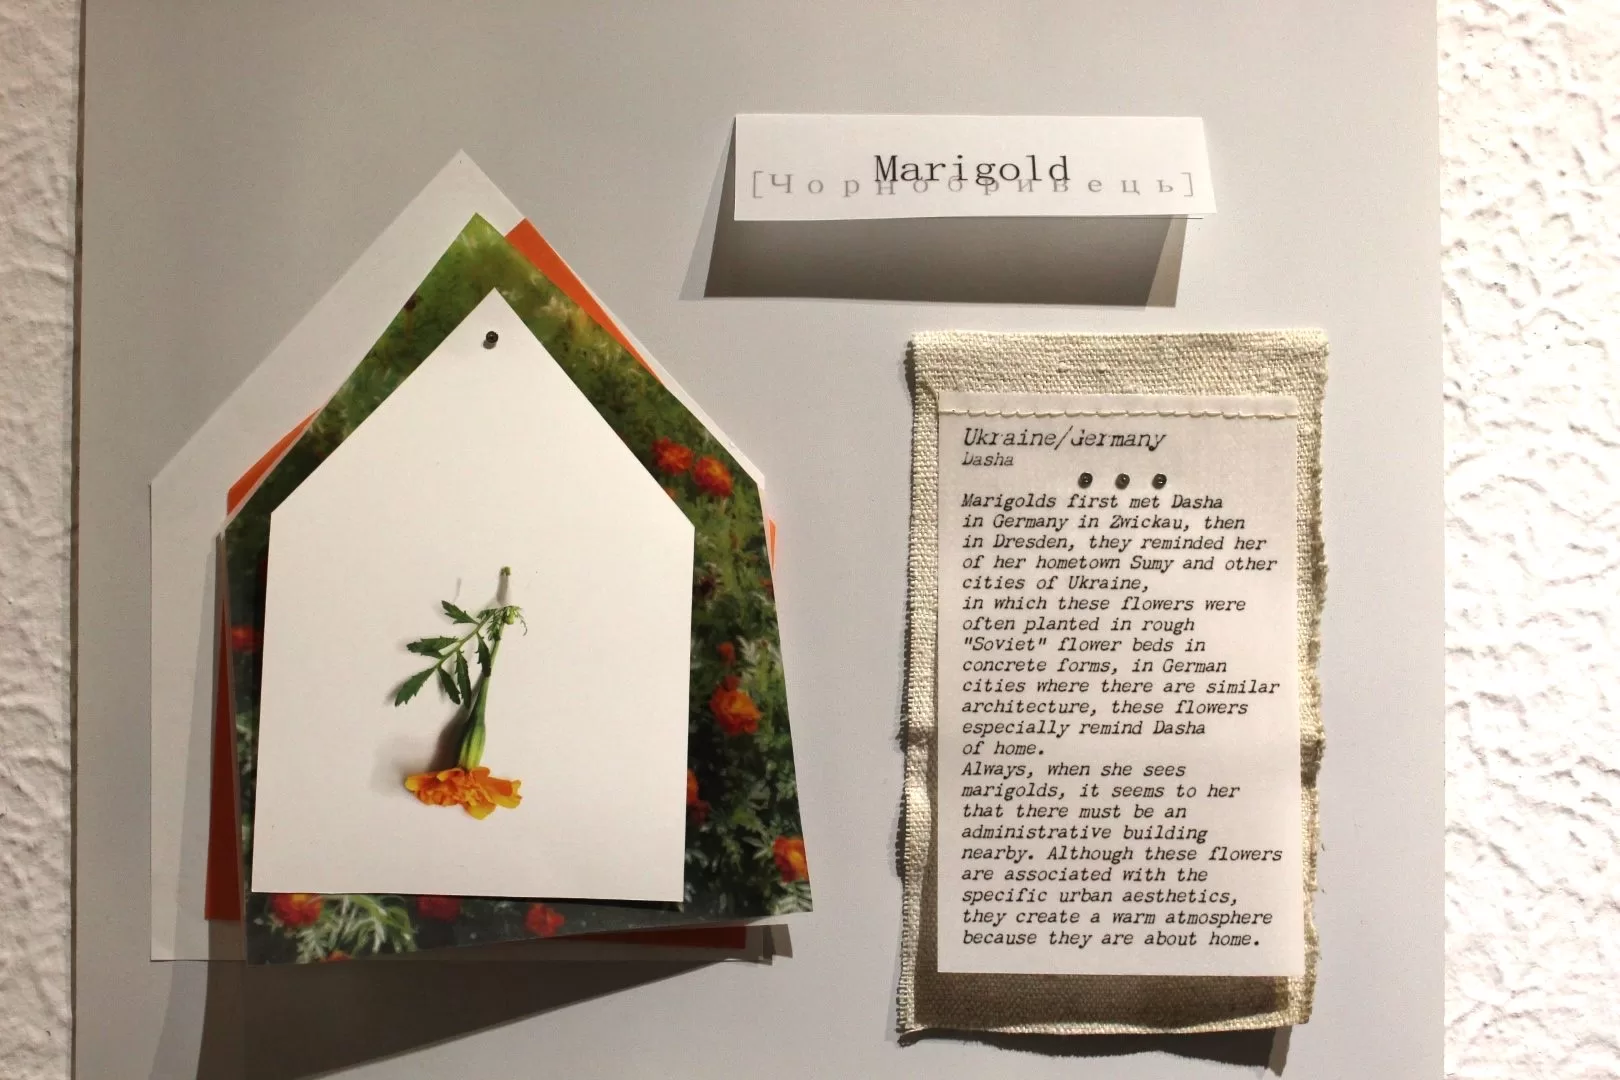 Marigold
[Чорнобривець]
Ukraine/Germany
Dasha
Marigolds first met Dasha
in Germany in Zwickau, then
in Dresden, they reminded her
of her hometown Sumy and other
cities of Ukraine,
in which these flowers were
often planted in rough
"Soviet" flower beds in
concrete forms, in German
cities where there are similar
architecture, these flowers
especially remind Dasha
of home.
Always, when she sees
marigolds, it seems to her
that there must be an
administrative building
nearby. Although these flowers
are associated with the
specific urban aesthetics,
they create a warm atmosphere
because they are about home.